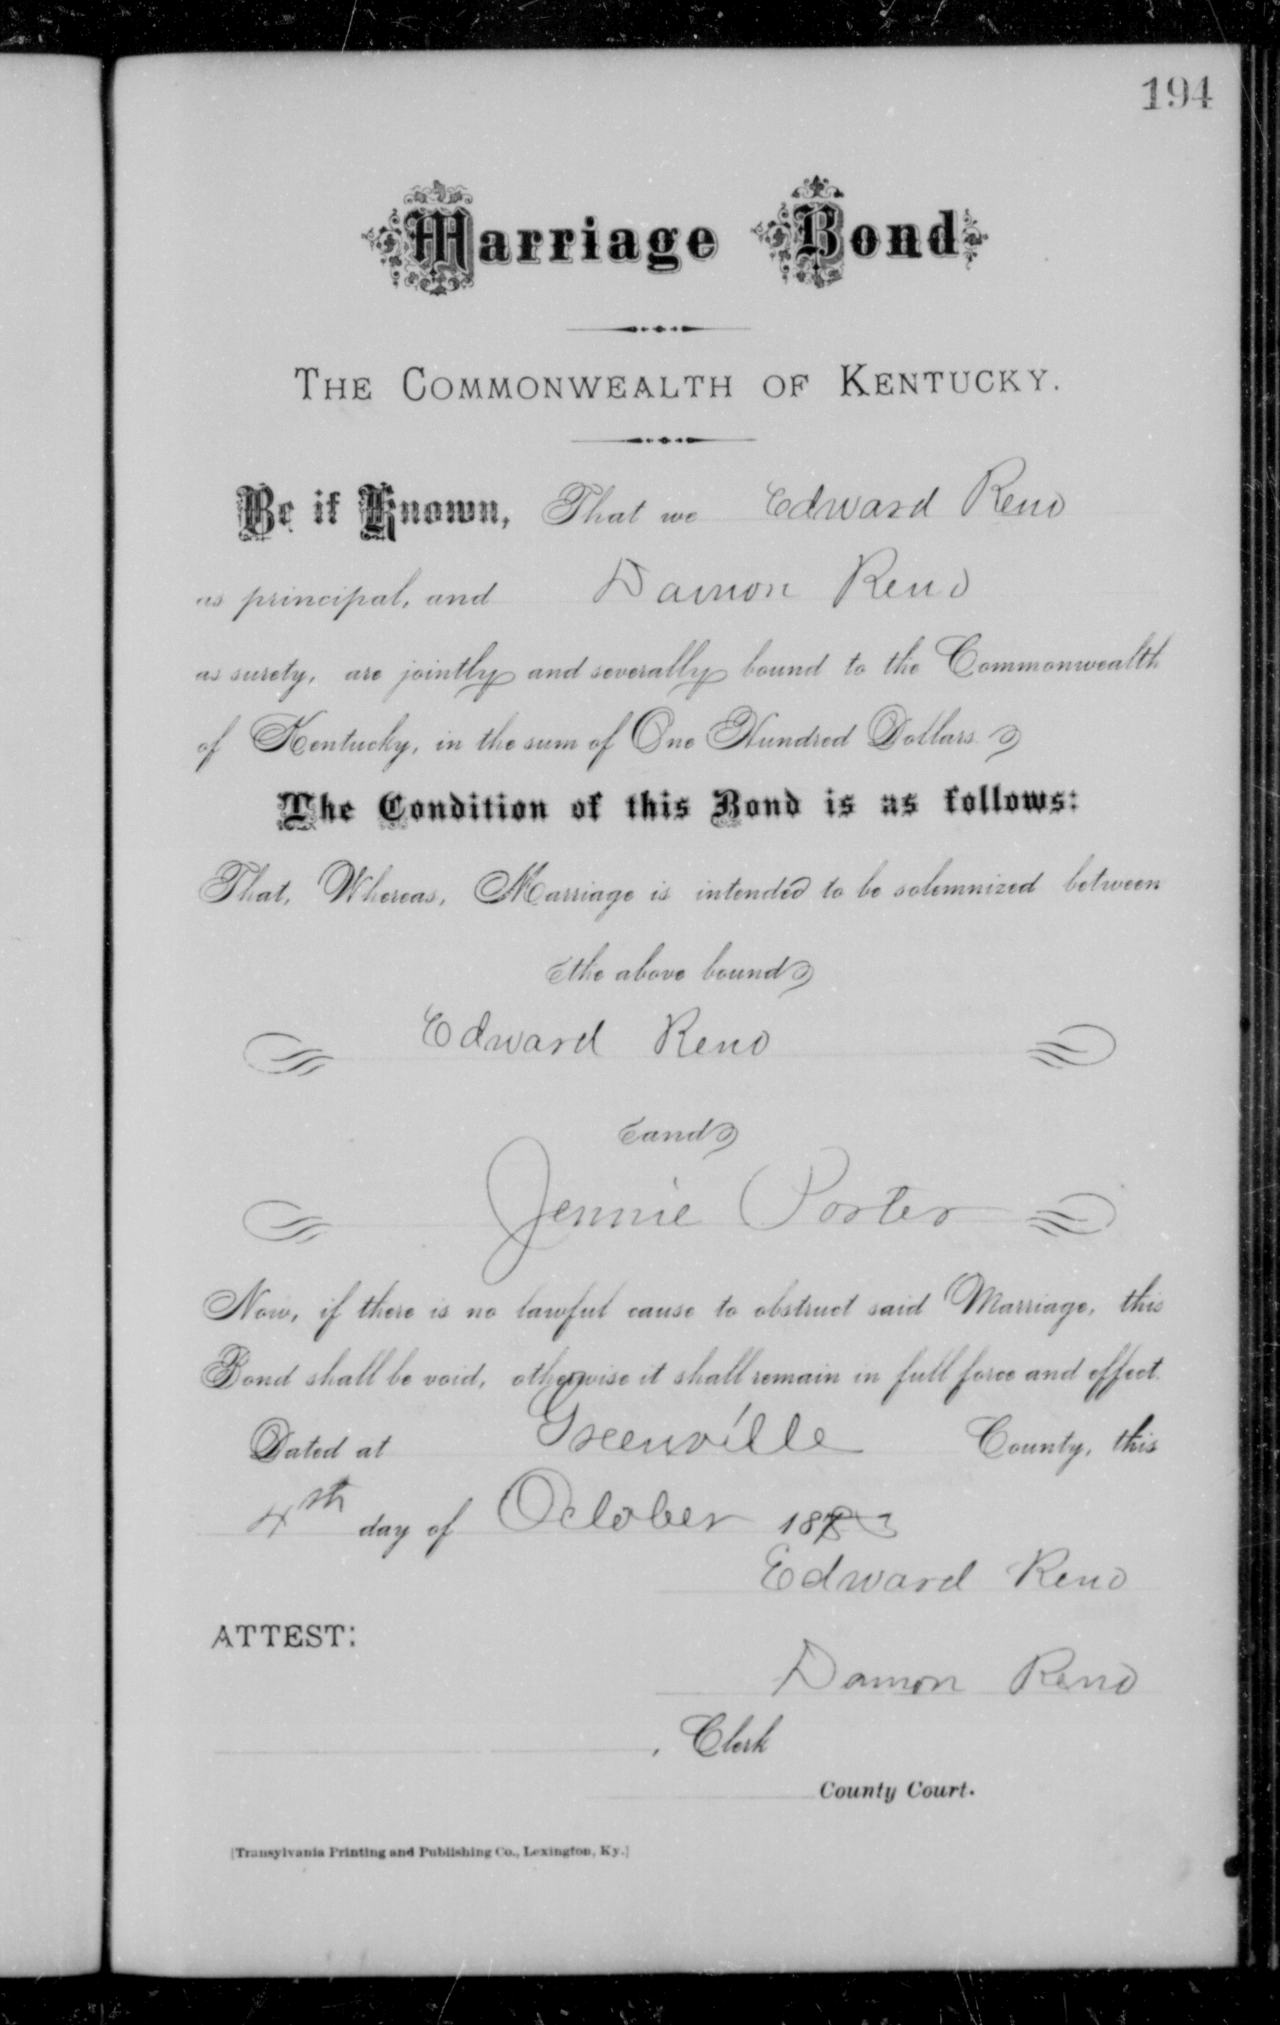 194
Marriage Bond
THE COMMONWEALTH OF KENTUCKY.
Be it Known, That we Edward Reno
as principal, and Damon Reno
as surety, are jointly and severally bound to the Commonwealth
of Kentucky, in the sum of One Hundred Dollars.
The Condition of this Bond is as follows:
That, Whereas, Marriage is intended to be solemnized between
the above bound
Edward Reno
and
Jennie Porter
Now, if there is no lawful cause to obstruct said Marriage, this
Bond shall be void, otherwise it shall remain in full force and effect.
Dated at Greenville County, this
4th day of October 1883
Edward Reno
ATTEST:
Damon Reno
, Clerk
County Court.
[Transylvania Printing and Publishing Co., Lexington, Ky.]